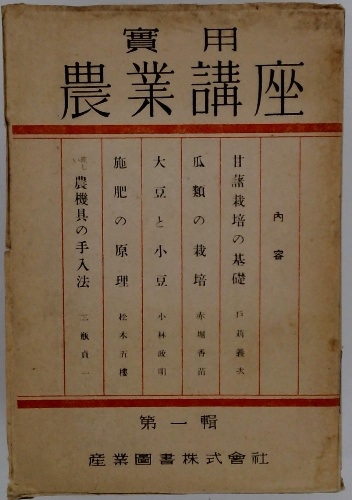 實用
農業講座
內容
甘藷栽培の基礎 戶苅義次
瓜類の栽培 赤堀香苗
大豆と小豆 小林政明
施肥の原理 松木五樓
農機具の手入法 二瓶貞一
第一輯
産業圖書株式會社